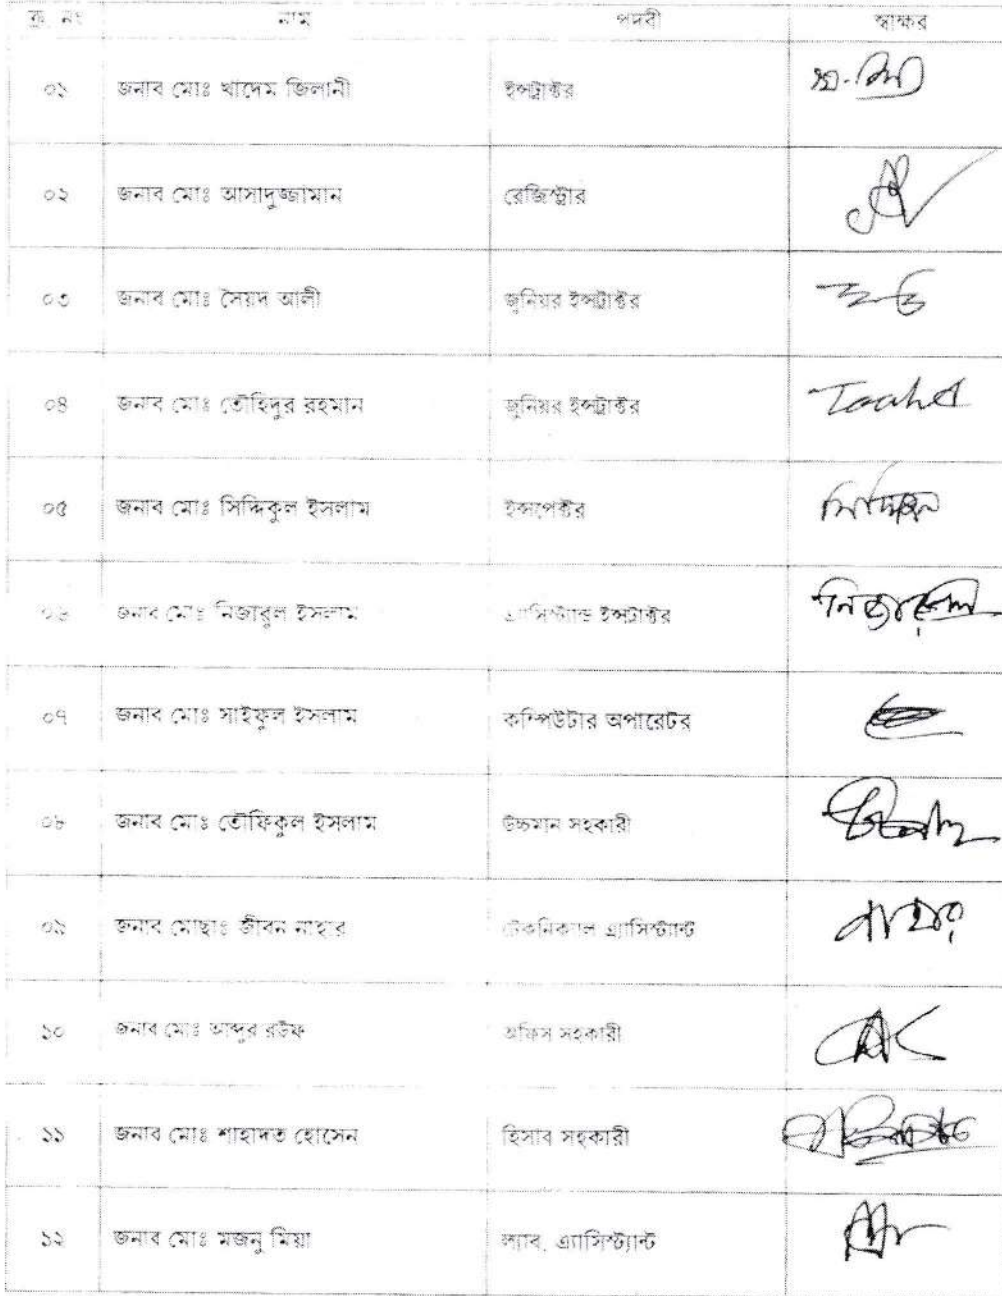 ক্র. নং নাম পদবী স্বাক্ষর
০১ জনাব মোঃ খাদেম জিলানী ইন্সট্রাক্টর
০২ জনাব মোঃ আসাদুজ্জামান রেজিস্ট্রার
০৩ জনাব মোঃ সৈয়দ আলী জুনিয়র ইন্সট্রাক্টর
০৪ জনাব মোঃ তৌহিদুর রহমান জুনিয়র ইন্সট্রাক্টর
০৫ জনাব মোঃ সিদ্দিকুল ইসলাম ইন্সপেক্টর
০৬ জনাব মোঃ নিজাবুল ইসলাম এ্যাসিস্ট্যান্ড ইন্সট্রাক্টর
০৭ জনাব মোঃ সাইফুল ইসলাম কম্পিউটার অপারেটর
০৮ জনাব মোঃ তৌফিকুল ইসলাম উচ্চমান সহকারী
০৯ জনাব মোছাঃ জীবন নাহার টেকনিক্যাল এ্যাসিস্ট্যান্ট নাহার
১০ জনাব মোঃ আব্দুর রউফ অফিস সহকারী
১১ জনাব মোঃ শাহাদত হোসেন হিসাব সহকারী
১২ জনাব মোঃ মজনু মিয়া ল্যাব. এ্যাসিস্ট্যান্ট